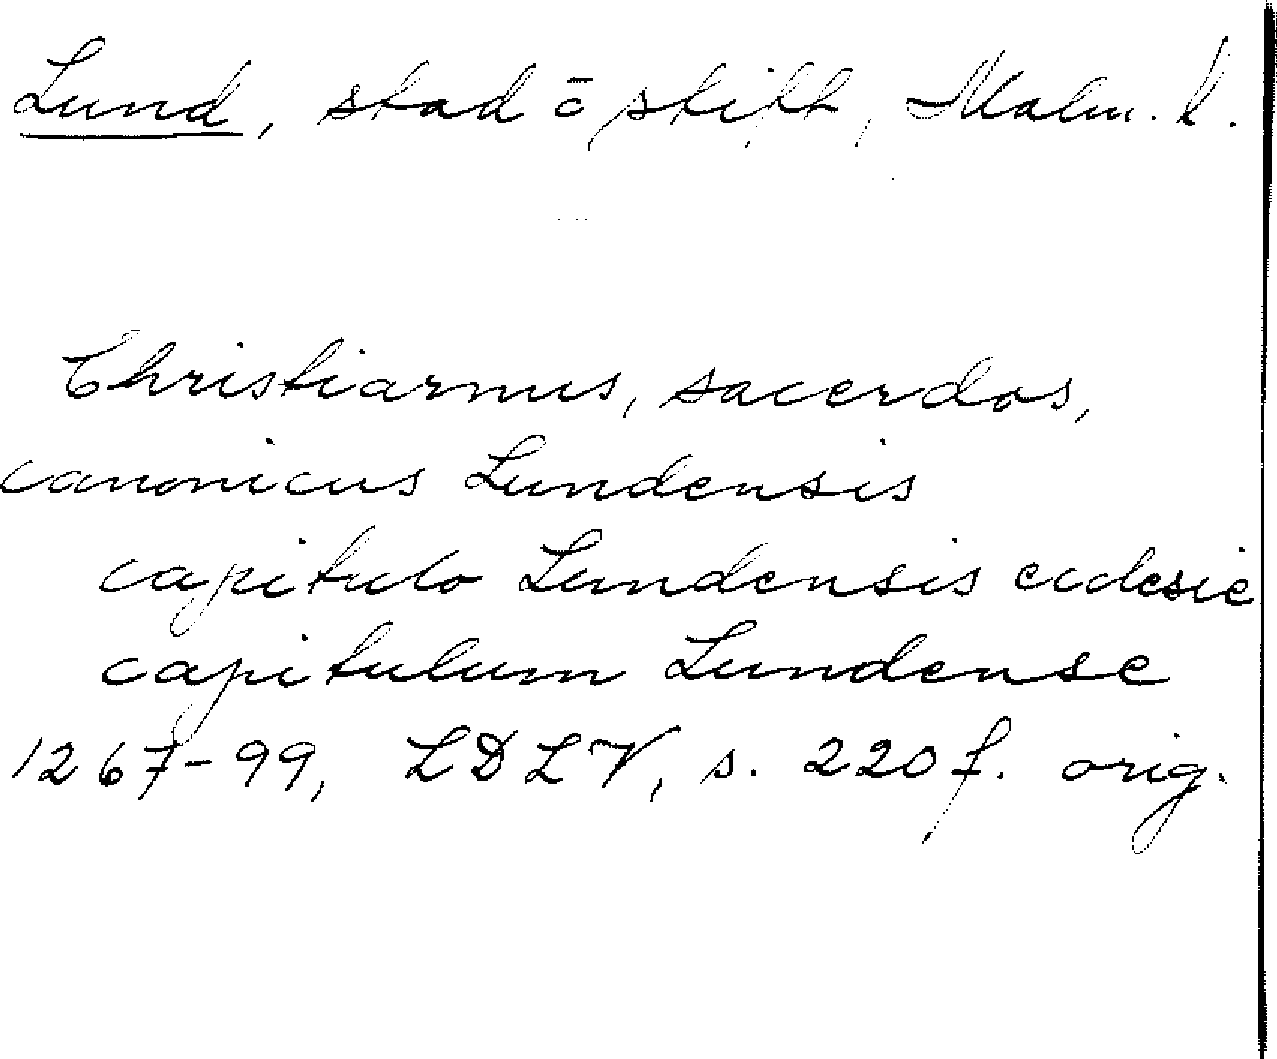 Lund, stad ō stift, Malm. l.
Christiarnus, sacerdos,
canonicus Lundensis
capitulo Lundensis ecclesie
capitulum Lundense
1267-99, LDLV, s. 220 f. orig.